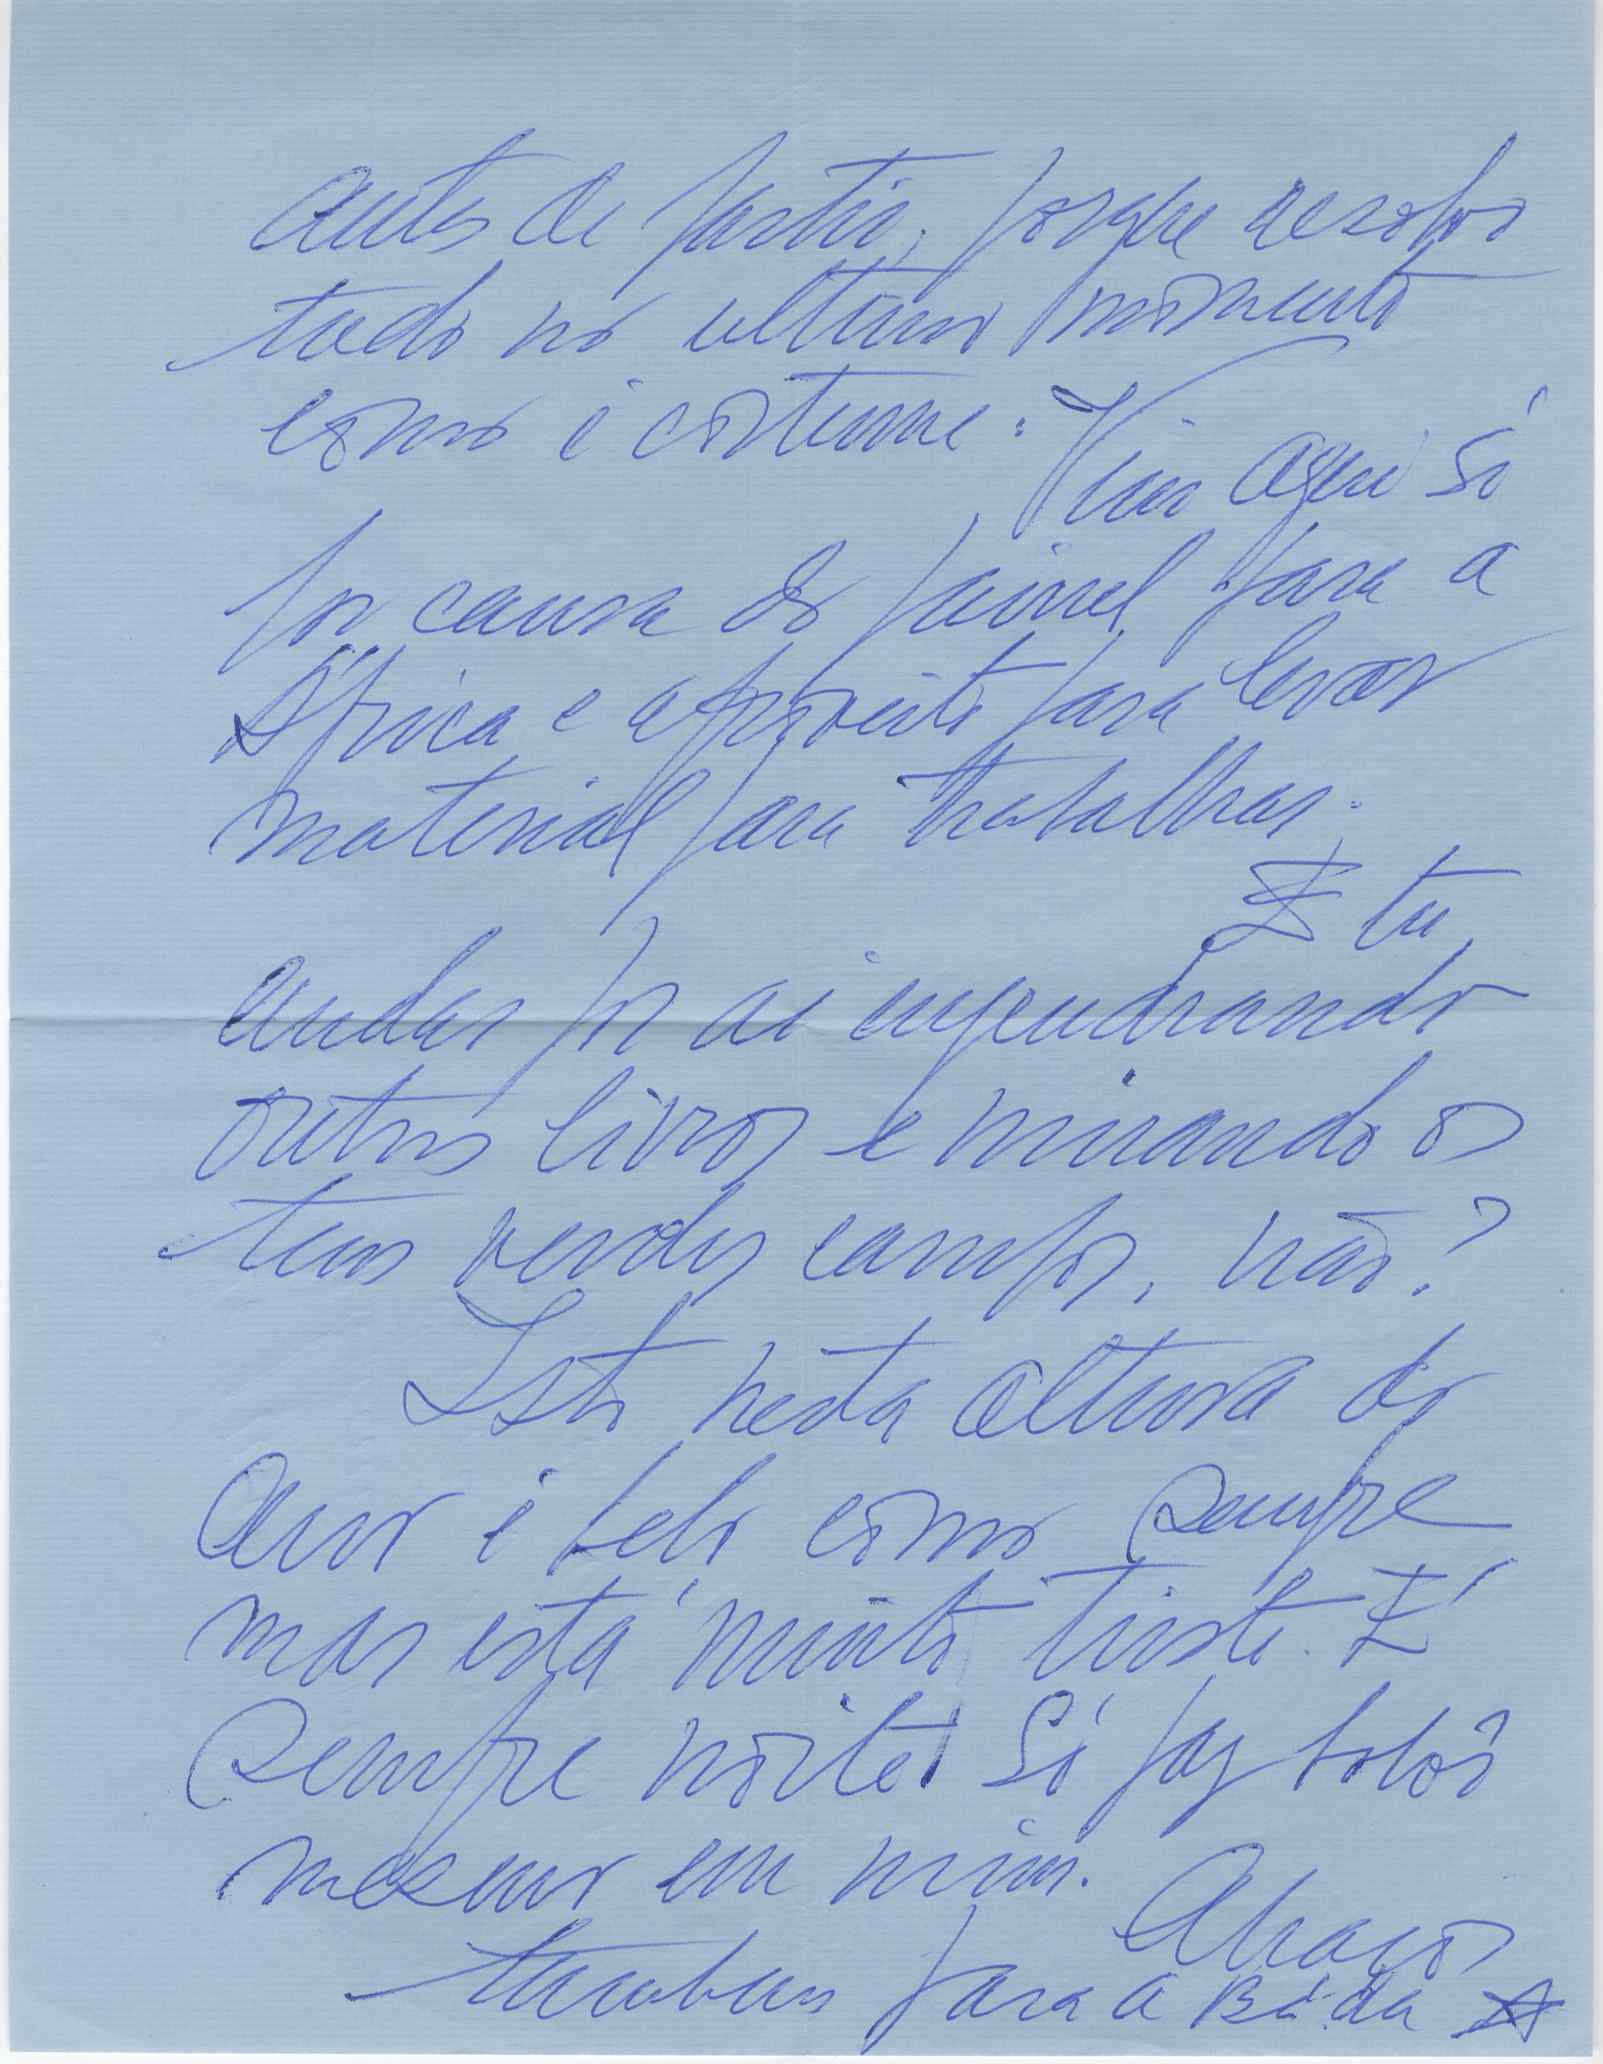 antes de partir, porque resolvo
tudo no ultimo momento
como é costume. Vim aqui só
por causa do painel para a
África e aproveito para levar
material para trabalhar.
E tu
andas por aí engendrando
outros livros e mirando os
teus verdes campos, não?
Isto nesta altura do
ano é belo como sempre
mas está muito triste. É
sempre noite! Só faz
mesmo em mim. Abraços
tambem para a